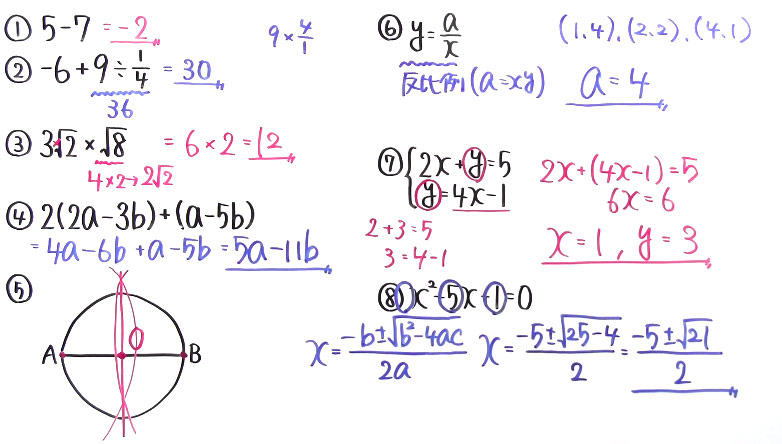 ① 5-7 = -2
9×4/1
② -6+9÷1/4 = 30
36
③ 3√2×√8 = 6×2=12
4×2→2√2
④ 2(2a-3b)+(a-5b)
=4a-6b+a-5b=5a-11b
⑤
O
A B
⑥ y=a/x (1.4).(2.2).(4.1)
反比例(a=xy) a=4
⑦ {2x+y=5 2x+(4x-1)=5
y=4x-1 6x=6
2+3=5
3=4-1 x=1, y=3
⑧ x²-5x-1=0
x=(-b±√(b²-4ac))/2a x=(-5±√(25-4))/2=(-5±√21)/2